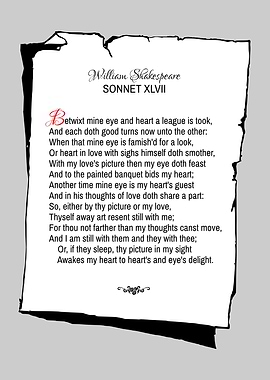 William Shakespeare
SONNET XLVII
Betwixt mine eye and heart a league is took,
And each doth good turns now unto the other:
When that mine eye is famish'd for a look,
Or heart in love with sighs himself doth smother,
With my love's picture then my eye doth feast
And to the painted banquet bids my heart;
Another time mine eye is my heart's guest
And in his thoughts of love doth share a part:
So, either by thy picture or my love,
Thyself away art resent still with me;
For thou not farther than my thoughts canst move,
And I am still with them and they with thee;
Or, if they sleep, thy picture in my sight
Awakes my heart to heart's and eye's delight.